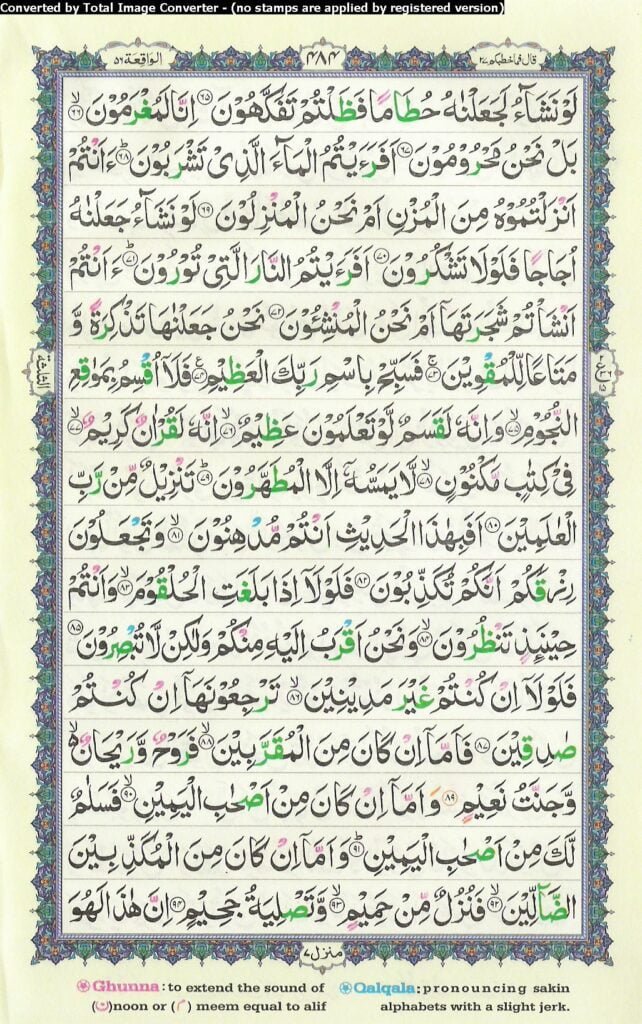 Converted by Total Image Converter - (no stamps are applied by registered version)
قال فماخطبكم ٢٧
٤٨٤
الواقعة ٥٦
لَوْ نَشَآءُ لَجَعَلْنٰهُ حُطَامًا فَظَلْتُمْ تَفَكَّهُوْنَ ۝٦٥ اِنَّا لَمُغْرَمُوْنَ ۝٦٦ۙ
بَلْ نَحْنُ مَحْرُوْمُوْنَ ۝٦٧ اَفَرَءَيْتُمُ الْمَآءَ الَّذِىْ تَشْرَبُوْنَ ۝٦٨ؕ ءَاَنْتُمْ
اَنْزَلْتُمُوْهُ مِنَ الْمُزْنِ اَمْ نَحْنُ الْمُنْزِلُوْنَ ۝٦٩ لَوْ نَشَآءُ جَعَلْنٰهُ
اُجَاجًا فَلَوْلَا تَشْكُرُوْنَ ۝٧٠ اَفَرَءَيْتُمُ النَّارَ الَّتِىْ تُوْرُوْنَ ۝٧١ؕ ءَاَنْتُمْ
اَنْشَاْتُمْ شَجَرَتَهَآ اَمْ نَحْنُ الْمُنْشِـُٔوْنَ ۝٧٢ نَحْنُ جَعَلْنٰهَا تَذْكِرَةً وَّ
مَتَاعًا لِّلْمُقْوِيْنَ ۝٧٣ۚ فَسَبِّحْ بِاسْمِ رَبِّكَ الْعَظِيْمِ ۝٧٤ فَلَآ اُقْسِمُ بِمَوٰقِعِ
النُّجُوْمِ ۝٧٥ۙ وَاِنَّهٗ لَقَسَمٌ لَّوْ تَعْلَمُوْنَ عَظِيْمٌ ۝٧٦ۙ اِنَّهٗ لَقُرْاٰنٌ كَرِيْمٌ ۝٧٧ۙ
فِىْ كِتٰبٍ مَّكْنُوْنٍ ۝٧٨ۙ لَّا يَمَسُّهٗٓ اِلَّا الْمُطَهَّرُوْنَ ۝٧٩ؕ تَنْزِيْلٌ مِّنْ رَّبِّ
الْعٰلَمِيْنَ ۝٨٠ اَفَبِهٰذَا الْحَدِيْثِ اَنْتُمْ مُّدْهِنُوْنَ ۝٨١ۙ وَتَجْعَلُوْنَ
رِزْقَكُمْ اَنَّكُمْ تُكَذِّبُوْنَ ۝٨٢ فَلَوْلَآ اِذَا بَلَغَتِ الْحُلْقُوْمَ ۝٨٣ۙ وَاَنْتُمْ
حِيْنَىِٕذٍ تَنْظُرُوْنَ ۝٨٤ۙ وَنَحْنُ اَقْرَبُ اِلَيْهِ مِنْكُمْ وَلٰكِنْ لَّا تُبْصِرُوْنَ ۝٨٥
فَلَوْلَآ اِنْ كُنْتُمْ غَيْرَ مَدِيْنِيْنَ ۝٨٦ۙ تَرْجِعُوْنَهَآ اِنْ كُنْتُمْ
صٰدِقِيْنَ ۝٨٧ فَاَمَّآ اِنْ كَانَ مِنَ الْمُقَرَّبِيْنَ ۝٨٨ۙ فَرَوْحٌ وَّرَيْحَانٌ ۙ
وَّجَنَّتُ نَعِيْمٍ ۝٨٩ وَاَمَّآ اِنْ كَانَ مِنْ اَصْحٰبِ الْيَمِيْنِ ۝٩٠ۙ فَسَلٰمٌ
لَّكَ مِنْ اَصْحٰبِ الْيَمِيْنِ ۝٩١ؕ وَاَمَّآ اِنْ كَانَ مِنَ الْمُكَذِّبِيْنَ
الضَّآلِّيْنَ ۝٩٢ۙ فَنُزُلٌ مِّنْ حَمِيْمٍ ۝٩٣ۙ وَّتَصْلِيَةُ جَحِيْمٍ ۝٩٤ اِنَّ هٰذَا لَهُوَ
الثلثة
منزل ٧
Ghunna: to extend the sound of
(ن) noon or (م) meem equal to alif
Qalqala: pronouncing sakin
alphabets with a slight jerk.